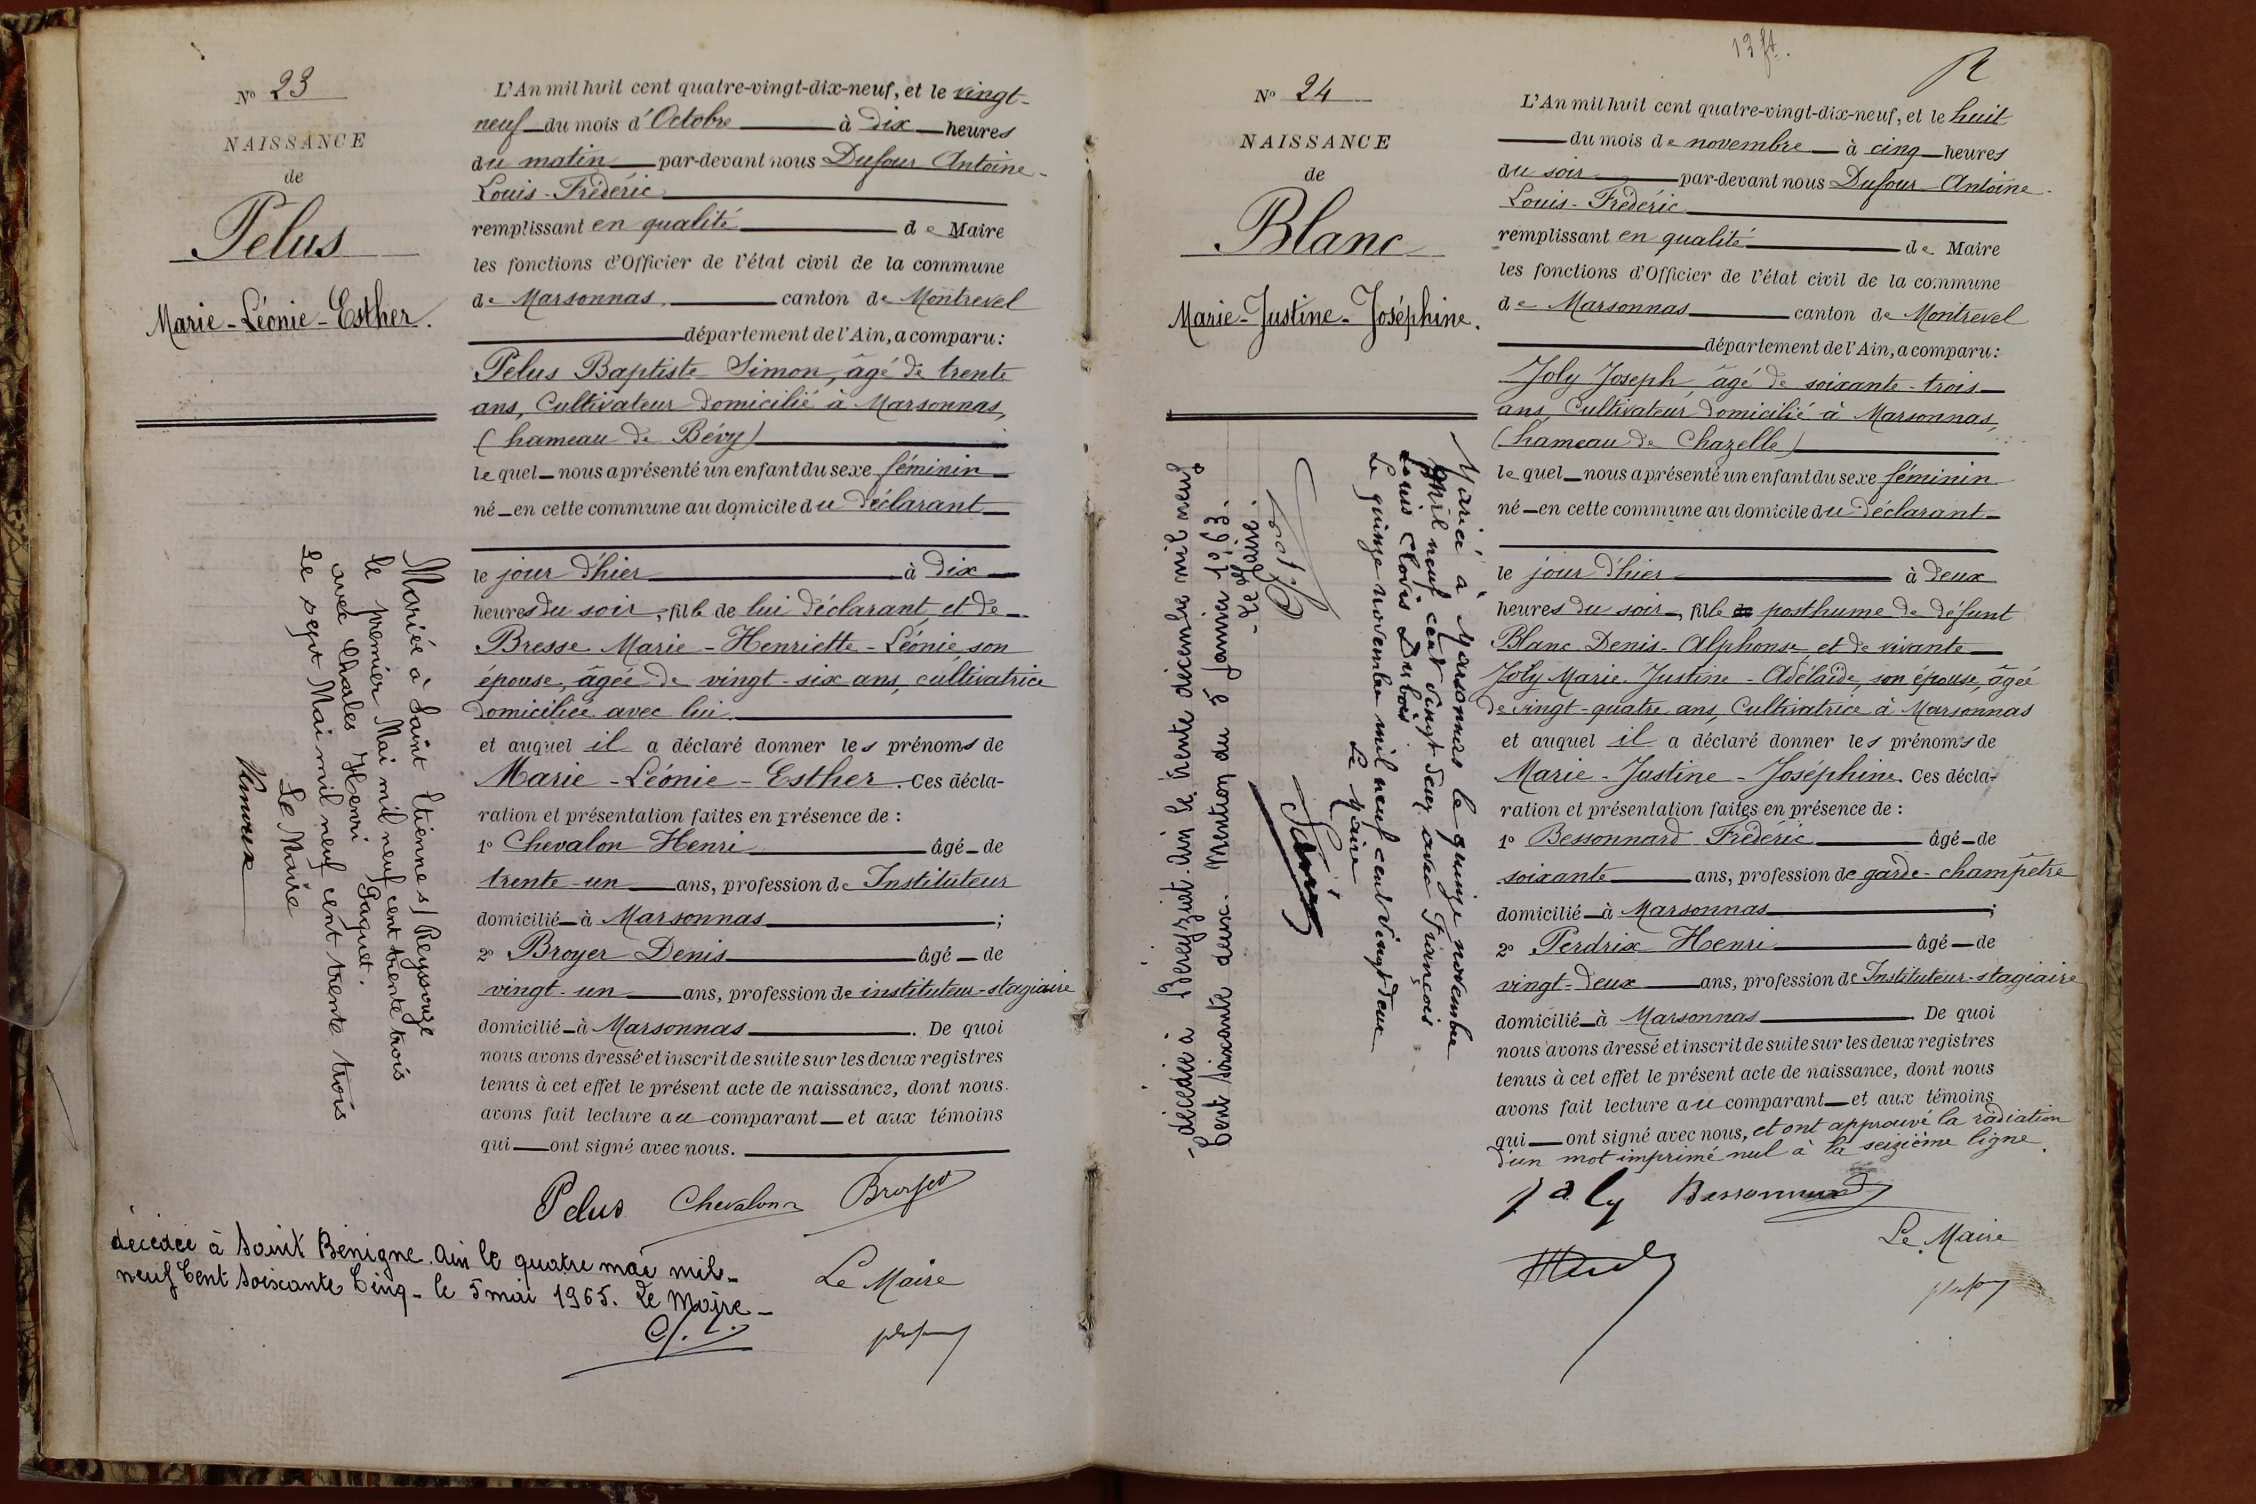 N° 23
NAISSANCE
de
Pelus
Marie-Léonie-Esther.
L'An mil huit cent quatre-vingt-dix-neuf, et le vingt-
neuf du mois d'Octobre à dix heures
du matin par-devant nous Dufour Antoine-
Louis-Frédéric
remplissant en qualité de Maire
les fonctions d'Officier de l'état civil de la commune
de Marsonnas canton de Montrevel
département de l'Ain, a comparu:
Pelus Baptiste Simon, âgé de trente
ans, Cultivateur domicilié à Marsonnas,
(hameau de Bévy)
lequel nous a présenté un enfant du sexe féminin
né en cette commune au domicile du déclarant
le jour d'hier à dix
heures du soir, fille de lui déclarant, et de
Bresse Marie-Henriette-Léonie, son
épouse, âgée de vingt-six ans, cultivatrice
domiciliée avec lui.
et auquel il a déclaré donner les prénoms de
Marie-Léonie-Esther. Ces décla-
ration et présentation faites en présence de :
1° Chevalon Henri âgé de
trente-un ans, profession de Instituteur
domicilié à Marsonnas ;
2° Broyer Denis âgé de
vingt-un ans, profession de instituteur-stagiaire
domicilié à Marsonnas . De quoi
nous avons dressé et inscrit de suite sur les deux registres
tenus à cet effet le présent acte de naissance, dont nous
avons fait lecture au comparant et aux témoins
qui ont signé avec nous.
Pelus Chevalon Broyer
Le Maire
Mariée à Saint Etienne s/ Reyssouze
le premier Mai mil neuf cent trente trois
avec Charles Henri Paquet.
Le sept Mai mil neuf cent trente trois
Le Maire
décédée à Saint Bénigne. Ain le quatre mai mil-
neuf Cent Soixante Cinq - le 5 mai 1965. Le Maire -
13 ft.
N° 24
NAISSANCE
de
Blanc
Marie-Justine-Joséphine.
L'An mil huit cent quatre-vingt-dix-neuf, et le huit
du mois de novembre à cinq heures
du soir par-devant nous Dufour Antoine-
Louis-Frédéric
remplissant en qualité de Maire
les fonctions d'Officier de l'état civil de la commune
de Marsonnas canton de Montrevel
département de l'Ain, a comparu:
Joly Joseph âgé de soixante-trois
ans, Cultivateur domicilié à Marsonnas,
(hameau de Chazelle)
lequel nous a présenté un enfant du sexe féminin
né en cette commune au domicile du déclarant
le jour d'hier à deux
heures du soir, fille posthume de défunt
Blanc Denis-Alphonse, et de vivante
Joly Marie-Justine-Adélaïde, son épouse, âgée
de vingt-quatre ans, Cultivatrice à Marsonnas
et auquel il a déclaré donner les prénoms de
Marie-Justine-Joséphine. Ces décla-
ration et présentation faites en présence de :
1° Bessonnard Frédéric âgé de
soixante ans, profession de garde-champêtre
domicilié à Marsonnas ;
2° Perdrix Henri âgé de
vingt-deux ans, profession de Instituteur-stagiaire
domicilié à Marsonnas . De quoi
nous avons dressé et inscrit de suite sur les deux registres
tenus à cet effet le présent acte de naissance, dont nous
avons fait lecture au comparant et aux témoins
qui ont signé avec nous, et ont approuvé la radiation
d'un mot imprimé nul à la seizième ligne.
Joly Bessonnard
Le Maire
Mariée à Marsonnas le quinze novembre
mil neuf cent vingt deux avec François
Louis Clovis Dubois
Le quinze novembre mil neuf cent vingt deux
Le Maire
décédée à Béréyziat. Ain le trente décembre mil neuf
Cent Soixante deux. Mention du 5 Janvier 1963.
Le Maire.